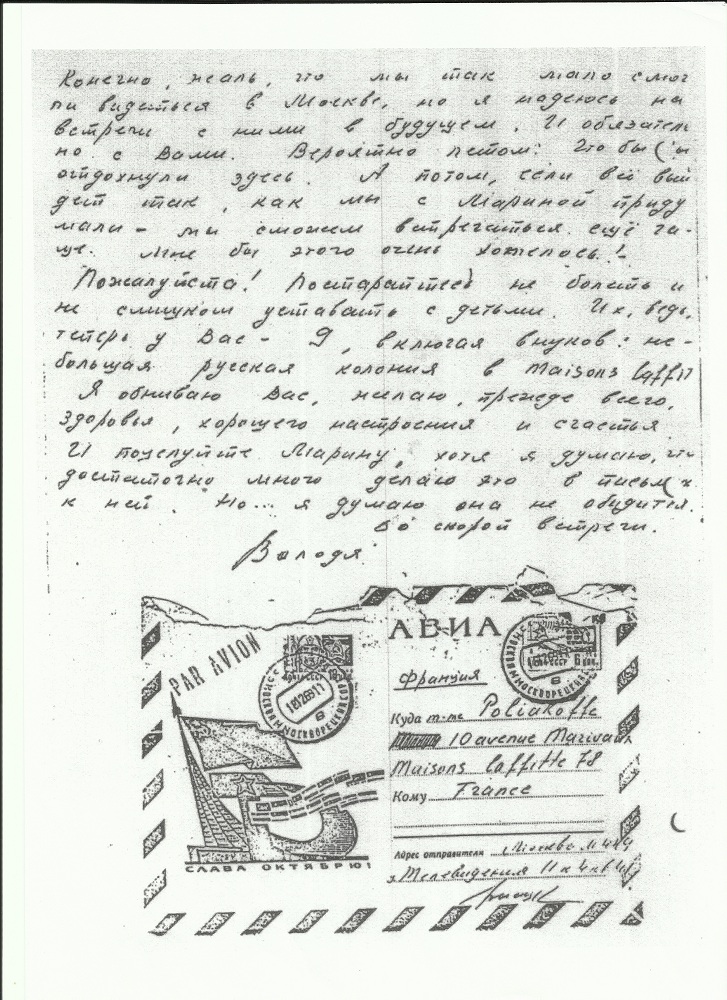 Конечно, жаль, что мы так мало смог
ли видеться в Москве, но я надеюсь на
встречи с ними в будущем. И обязатель
но с Вами. Вероятно летом: Что бы
отдохнули здесь. А потом, если всё вый
дет так, как мы с Мариной приду
мали - мы сможем встречаться ещё ча-
ще. Мне бы этого очень хотелось!-
Пожалуйста! Постарайтесь не болеть и
не слишком уставать с детьми. Их, ведь,
теперь у Вас - 9, включая внуков: не-
большая русская колония в Maisons Laffit
Я обнимаю Вас, желаю, прежде всего,
здоровья, хорошего настроения и счастья
И поцелуйте Марину, хотя я думаю, что
достаточно много делаю это в письмах
к ней. Но... я думаю она не обидится.
До скорой встречи.
Володя
PAR AVION
АВИА
Франция
Куда m-me Poliakoff
10 avenue Marivaux
Maisons Laffitte 78
Кому France
СЛАВА ОКТЯБРЮ!
Адрес отправителя Москва
Телевидения 11 к 4 кв